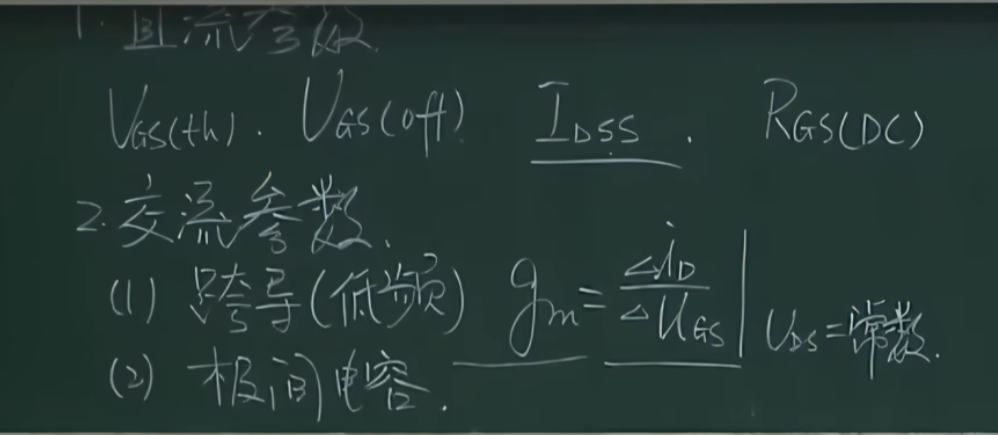 1. 直流参数.
UGS(th). UGS(off) IDSS. RGS(DC)
2. 交流参数.
(1) 跨导(低频) gm = ΔiD/ΔUGS | UDS=常数.
(2) 极间电容.